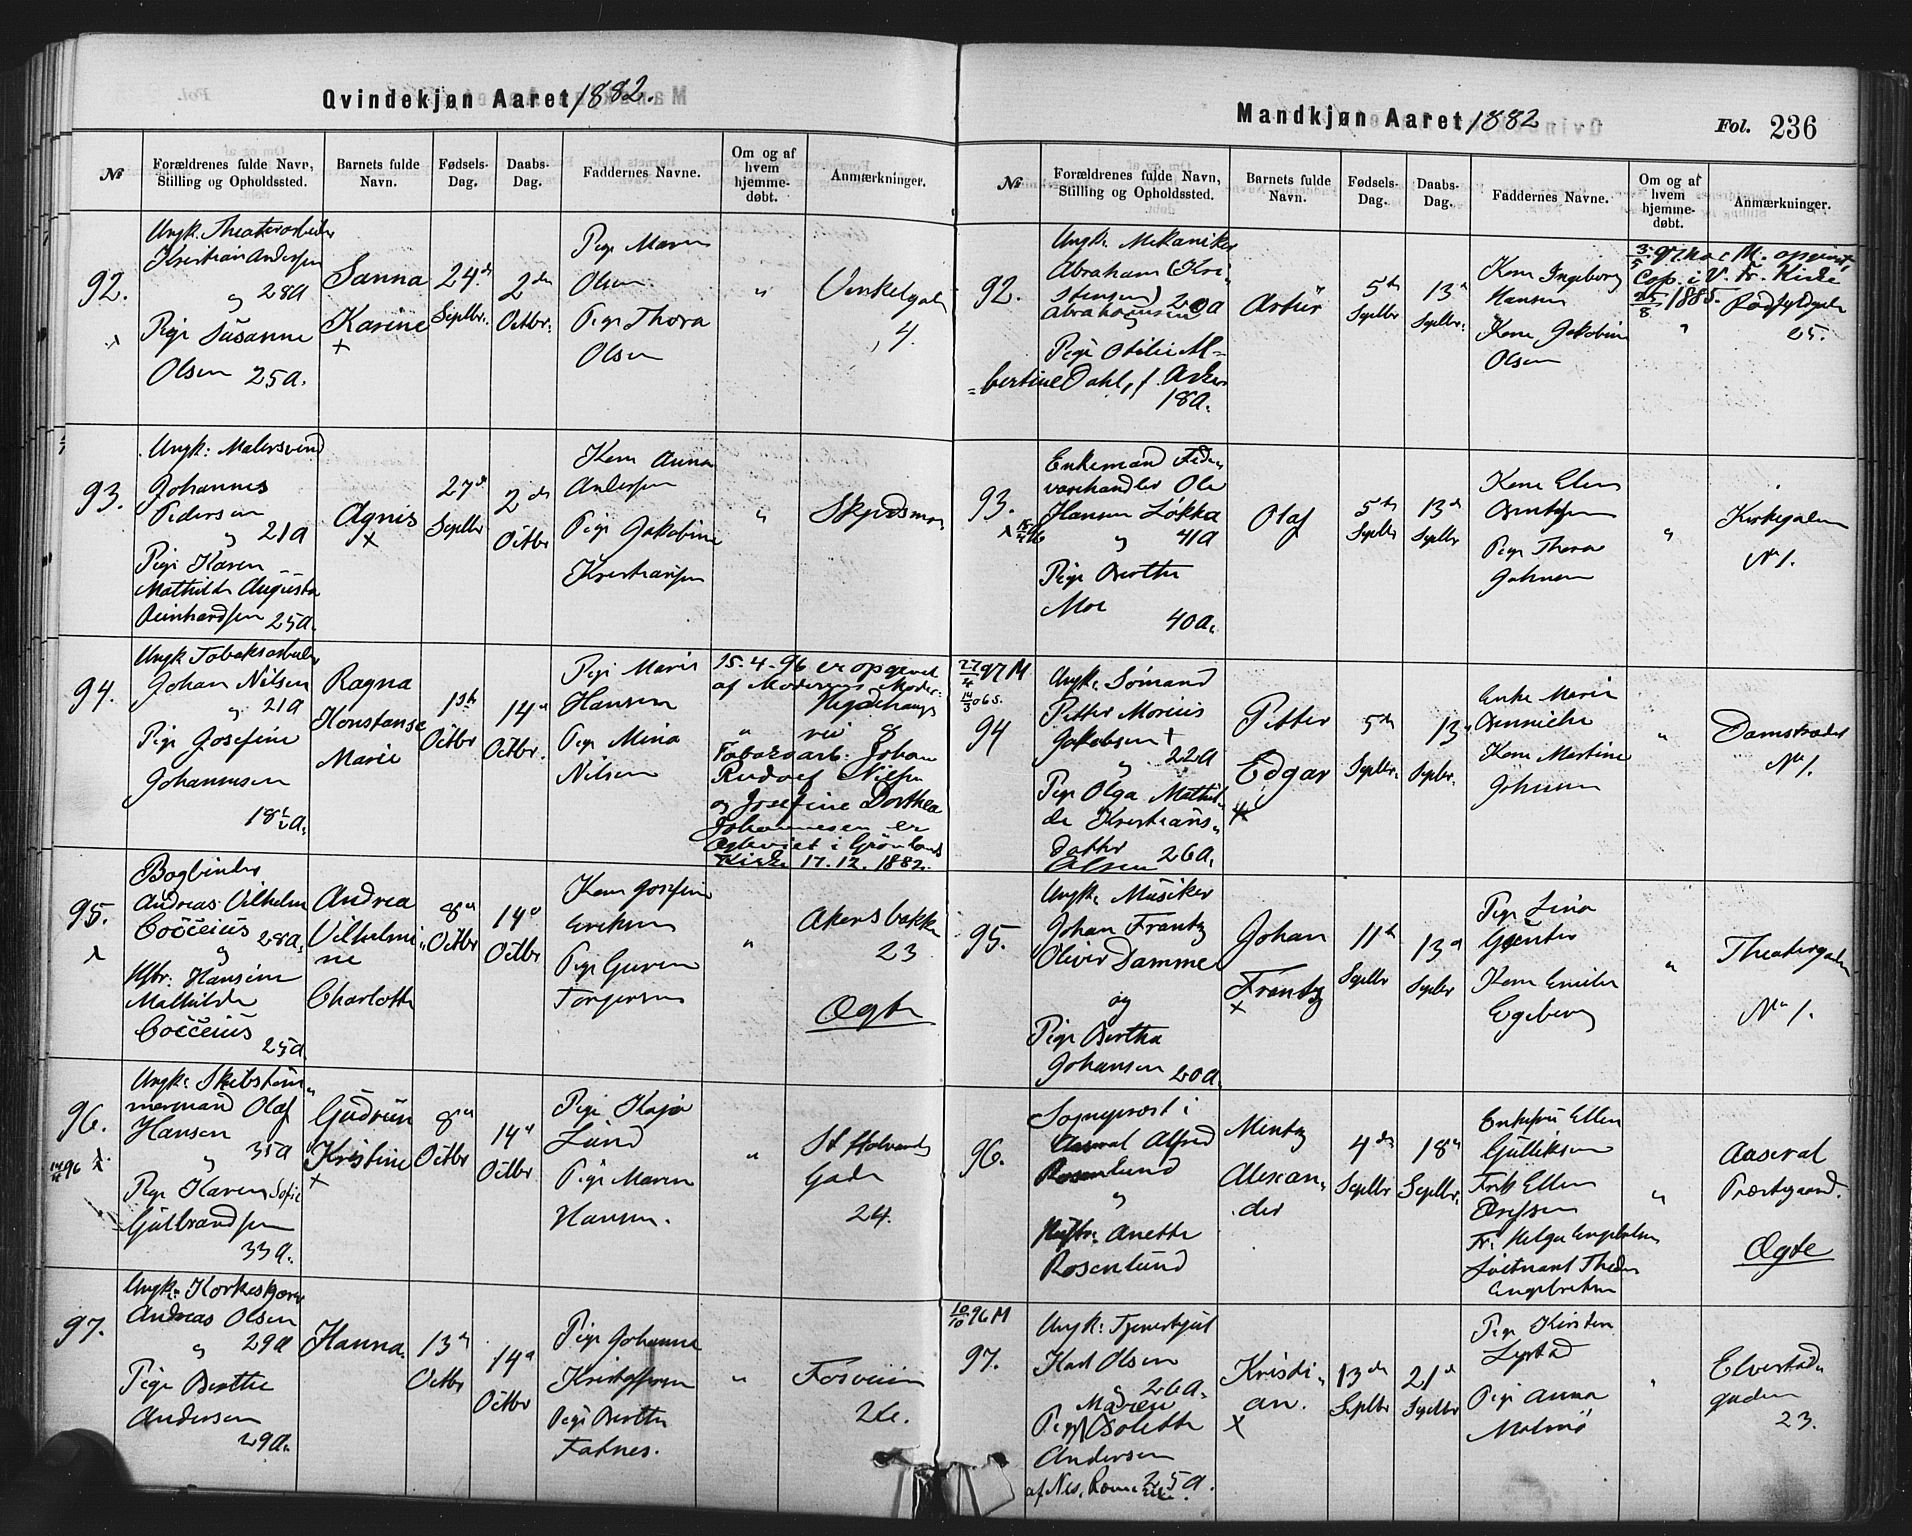 Qvindekjøn Aaret 1882.
№
Forældrenes fulde Navn, Stilling og Opholdssted.
Barnets fulde Navn.
Fødsels-Dag.
Daabs-Dag.
Faddernes Navne.
Om og af hvem hjemme-døbt.
Anmærkninger.
92.
Ungk. Theaterarbeider
Kristian Andersen
28a
Pige Susanne
Olsen 25a.
Sanna
Karine
24de
Septbr.
2den
Octbr.
Pige Maren
Olsen
Pige Thora
Olsen
"
Vinkelgaden
4.
93.
Ungk: Malersvend
Johannes
Pedersen
" 21a
Pige Karen
Mathilde Augusta
Reinhardsen 25a.
Agnis
27de
Septbr
2den
Octbr
Kone Anna
Andersen
Pige Jakobine
Kristiansen
"
94.
Ungk Tobaksarbeider
Johan Nilsen
" 21a
Pige Josefine
Johannesen
18½a.
Ragna
Konstanse
Marie
1ste
Octbr
14de
Octbr.
Pige Marie
Hansen
Pige Mina
Nilsen
15.4.96 er opgivet
af Moderens Moder:
Hegdehaugs
vei 8
Tobaksarb. Johan
Rudolf Nilsen
og Josefine Dorthea
Johannesen er
Ægteviet i Grønlands
Kirke 17.12.1882.
95.
Bogbinder
Andreas Vilhelm
Cocceius 28a.
Hstr: Hansine
Mathilde
Cocceius
25a
Andrea
Vilhelmi-
ne
Charlotte
8de
Octbr
14de
Octbr
Kone Josefine
Eriksen
Pige Guren
Torgersen
"
Akersbakken
23
Ægte
96.
14/4 96
Ungk: Skibstøm-
mermand Olaf
Hansen
" 35a
Pige Karen Sofie
Gulbrandsen
33a.
Gudrun
Kristine
8de
Octbr
14de
Octbr
Pige Kaja
Lund
Pige Maren
Hansen.
"
St Halvards
Gade
24.
97.
Ungk: Korkeskjærer
Andreas Olsen
" 29a
Pige Berthe
Andersen
29a.
Hanna.
13de
Octbr
14de
Octbr
Pige Johanne
Kristoffersen
Pige Berthe
"
Fosveien
Mandkjøn Aaret 1882
Fol. 236
№
Forældrenes fulde Navn, Stilling og Opholdssted.
Barnets fulde Navn.
Fødsels-Dag.
Daabs-Dag.
Faddernes Navne.
Om og af hvem hjemme-døbt.
Anmærkninger.
92.
Ungk: Mekaniker
Abraham (Kri-
stensen)
Abrahamsen 20a
Pige Otilie Al-
bertine Dahl, f. Aker
18a.
Artur
5te
Septbr
13de
Septbr.
Kone Ingeborg
Hansen
Kone Jakobine
Olsen
Cop. i V. Fr. Kirke
1885.
"
25.
93.
Enkemand Fede-
varehandler Ole
Hansen Løkka
" 41a
Pige Berthe
Moe
40a.
Olaf
5te
Septbr
13de
Septbr
Kone Elen
Pige Thora
Johnsen
"
Kirkegaden
No 1.
27/4 97 M
14/3 06 S.
94
Ungk: Sømand
Petter Morius
Jakobsen
" 22a
Pige Olga Mathil-
de Kristians-
datter
Olsen 26a.
Petter
Edgar
5te
Septbr.
13de
Septbr.
Enke Marie
Kone Martine
Johnsen
"
Damstrædet
No 1.
95.
Ungk: Musiker
Johan Frantz
Oliver Damme
og
Pige Bertha
Johansen 20a.
Johan
Frantz
11te
Septbr
13de
Septbr
Pige Lina
Gjenter
Kone Emilie
Egeberg
"
Theatergaden
No 1.
96.
Sogneprest i
Aaseral Alfred
Rosenlund
"
Hustr: Anette
Rosenlund
Mentz
Alexan-
der
4de
Septbr
18de
Septbr.
Enkefru Ellen
Gulliksen
Frk Ellen
Fr. Helga Engebretsen
Løitnant Theodor
Engebretsen
"
Aaseral
Præstegaard.
Ægte
10/10 96 M
97.
Ungk: Tjenerkjut
Karl Olsen
" 26a.
Maren
Pige Isolette
Andersen
af Nes, Rome- 25a.
rike.
Kristi-
an.
13de
Septbr
21de
Septbr
Pige Kirsten
Lystad
Pige Anna
Malmø
"
Elvestad-
gaden
23.